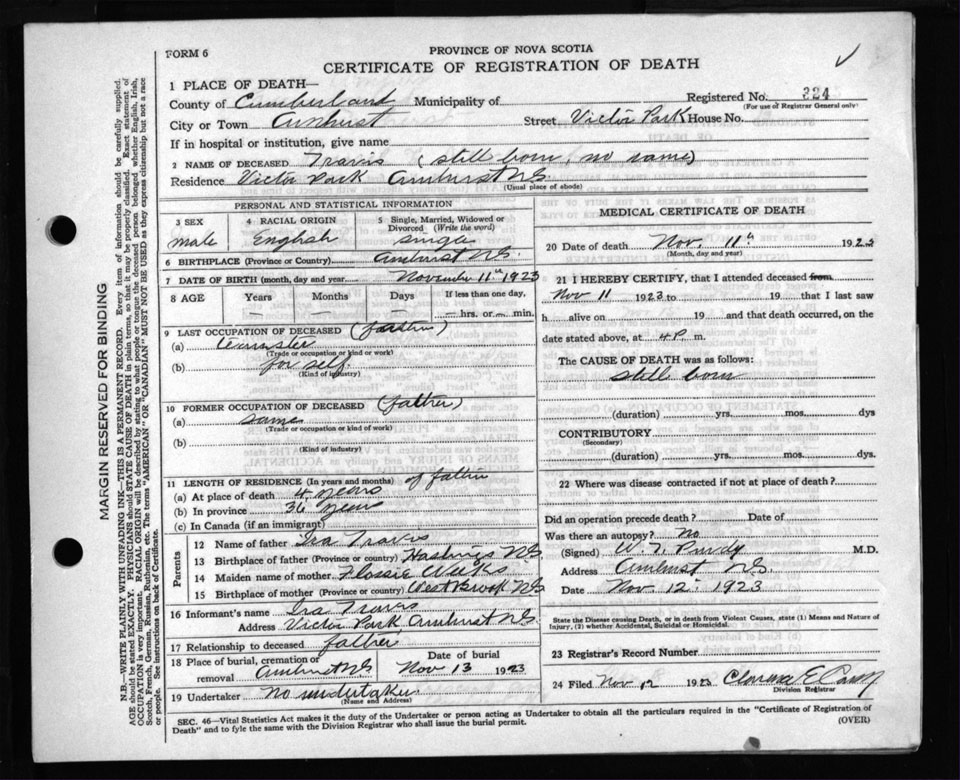 FORM 6
PROVINCE OF NOVA SCOTIA
CERTIFICATE OF REGISTRATION OF DEATH
1 PLACE OF DEATH—
Registered No. 324
(For use of Registrar General only)
County of Cumberland Municipality of
City or Town Amherst Street Victor Park House No.
If in hospital or institution, give name
2 NAME OF DECEASED Travis (still born, no name)
Residence Victor Park Amherst N.S.
(Usual place of abode)
PERSONAL AND STATISTICAL INFORMATION
3 SEX 4 RACIAL ORIGIN 5 Single, Married, Widowed or Divorced (Write the word)
male English single
6 BIRTHPLACE (Province or Country) Amherst N.S.
7 DATE OF BIRTH (month, day and year) November 11th 1923
8 AGE Years Months Days If less than one day,
— — — — hrs. or — min.
9 LAST OCCUPATION OF DECEASED (father)
(a) teamster
(Trade or occupation or kind or work)
(b) for self.
(Kind of industry)
10 FORMER OCCUPATION OF DECEASED (father)
(a) same
(Trade or occupation or kind of work)
(b)
(Kind of industry)
11 LENGTH OF RESIDENCE (In years and months) of father
(a) At place of death 4 years
(b) In province 36 years
(c) In Canada (if an immigrant)
Parents
12 Name of father Ira Travis
13 Birthplace of father (Province or country) Hastings N.S.
14 Maiden name of mother Flossie Weeks
15 Birthplace of mother (Province or country) West Brook N.S.
16 Informant's name Ira Travis
Address Victor Park Amherst N.S.
17 Relationship to deceased father
18 Place of burial, cremation or removal Amherst N.S. Date of burial Nov 13 1923
19 Undertaker No undertaker
(Name and Address)
MEDICAL CERTIFICATE OF DEATH
20 Date of death Nov. 11th 1923
(Month, day and year)
21 I HEREBY CERTIFY, that I attended deceased from
Nov 11 1923 to 19 that I last saw
h alive on 19 and that death occurred, on
date stated above, at 4 P. m.
The CAUSE OF DEATH was as follows:
still born
(duration) yrs. mos. dys
CONTRIBUTORY
(Secondary)
(duration) yrs. mos. dys
22 Where was disease contracted if not at place of death?
Did an operation precede death? Date of
Was there an autopsy? No
(Signed) W. T. Purdy M.D.
Address Amherst N.S.
Date Nov. 12. 1923
State the Disease causing Death, or in death from Violent Causes, state (1) Means and Nature of Injury, (2) whether Accidental, Suicidal or Homicidal.
23 Registrar's Record Number
24 Filed Nov 12 1923
Division Registrar
SEC. 46—Vital Statistics Act makes it the duty of the Undertaker or person acting as Undertaker to obtain all the particulars required in the "Certificate of Registration of
Death" and to fyle the same with the Division Registrar who shall issue the burial permit.
(OVER)
MARGIN RESERVED FOR BINDING
N.B.—WRITE PLAINLY WITH UNFADING INK—THIS IS A PERMANENT RECORD. Every item of information should be carefully supplied.
AGE should be stated EXACTLY. PHYSICIANS should STATE CAUSE OF DEATH in plain terms, so that it may be properly classified. Exact statement of
OCCUPATION is very important. RACIAL ORIGIN will be described by stating to what people or tongue the deceased person belonged whether English, Irish,
Scotch, French, German, Russian, Ruthenian, etc. The terms "AMERICAN" OR "CANADIAN" MUST NOT BE USED as they express citizenship but not a race
or people. See instructions on back of Certificate.